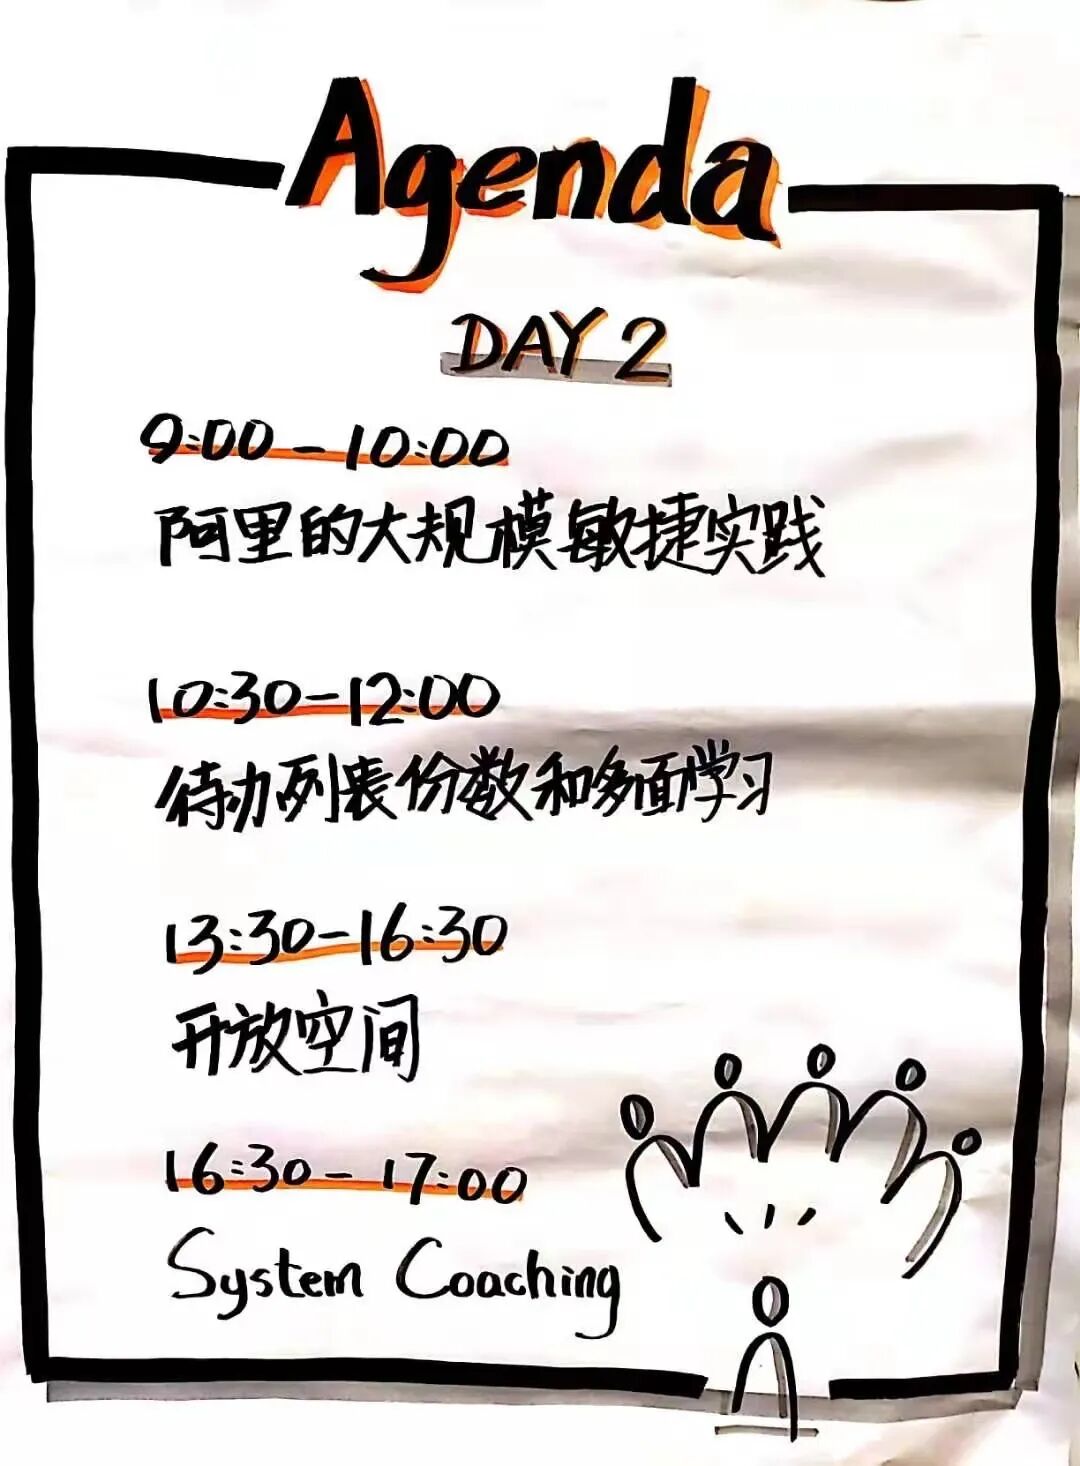 Agenda
DAY 2
9:00-10:00
阿里的大规模敏捷实践
10:30-12:00
待办列表份数和多面学习
13:30-16:30
开放空间
16:30-17:00
System Coaching